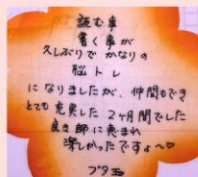 読む事
書く事が
久しぶりでかなりの
脳トレ
になりましたが、仲間もでき
とても充実した2ヶ月間でした
良き師に恵まれ
楽しかったですよ〜♡
ブタ玉